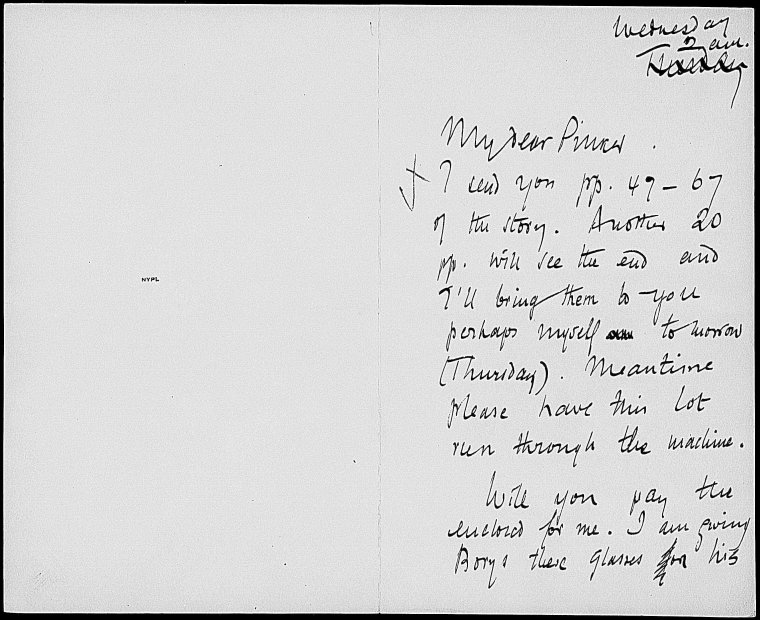 Wednesday
2 am.
My dear Pinker.
I send you pp. 47 – 67
of the story. Another 20
pp. will see the end and
I'll bring them to you
perhaps myself to morrow
(Thursday). Meantime
please have this lot
run through the machine.
Will you pay the
enclosed for me. I am giving
Borys these glasses for his
NYPL